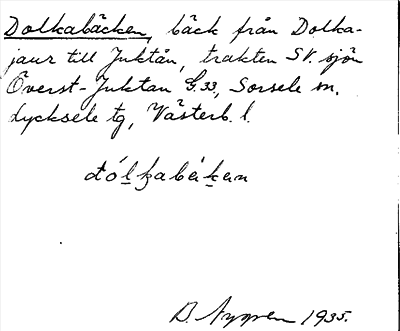 Dolkabäcken, bäck från Dolka-
jaur till Juktån, trakten SV. sjön
Överst-Juktan G.33, Sorsele sn.
Lycksele tg, Västerb. l.
dólkabäkan
D. Nygren 1935.